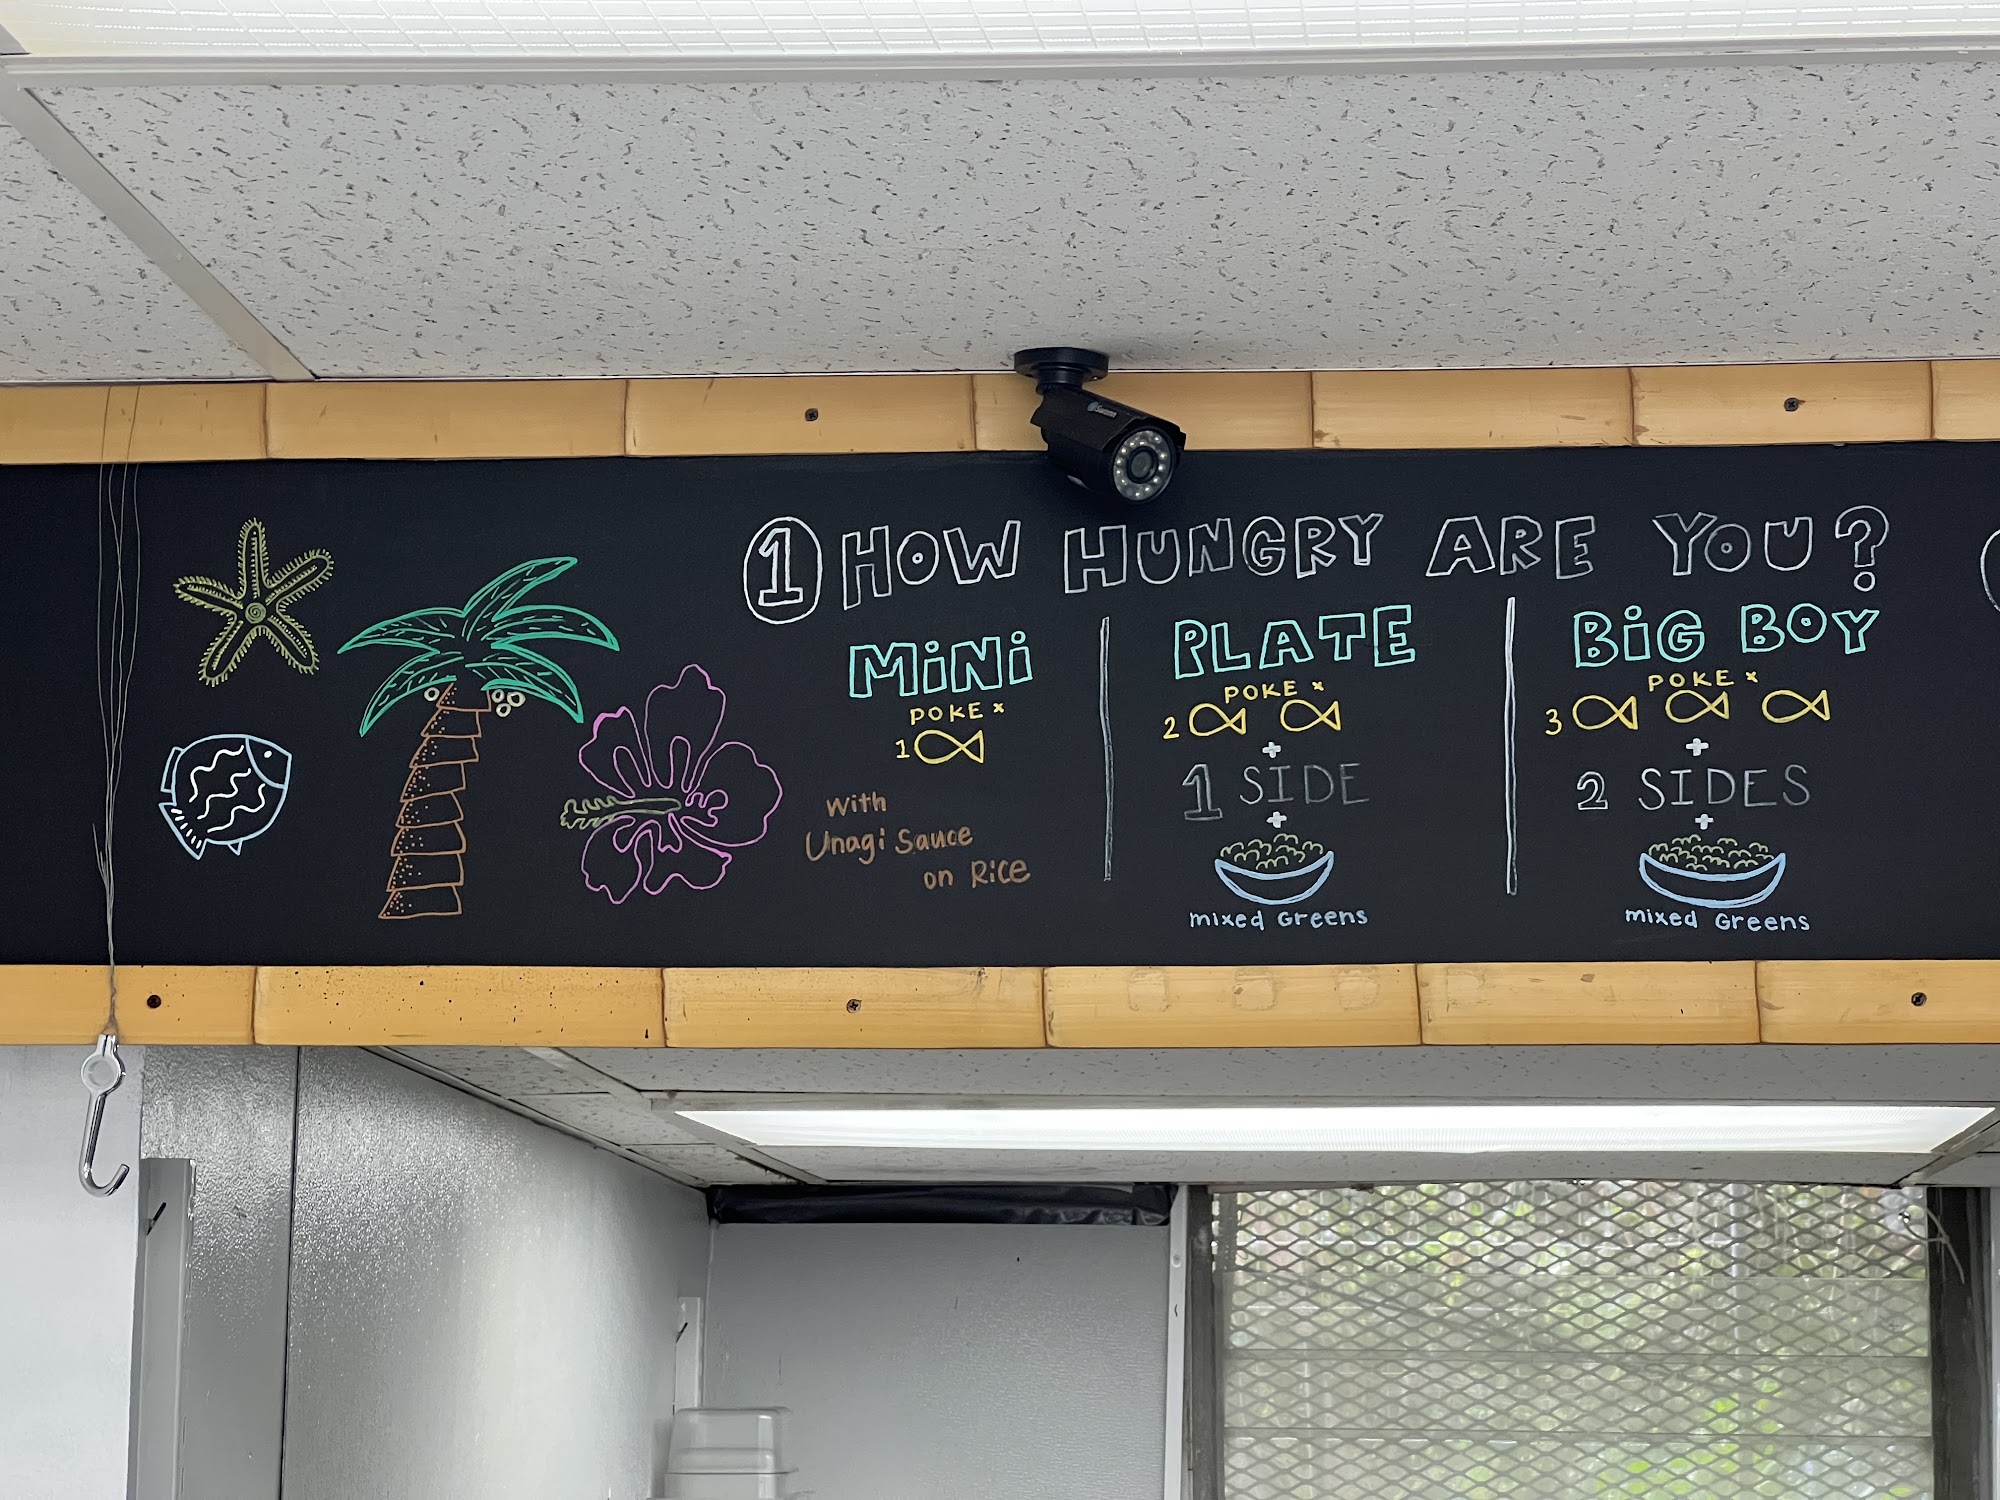 1 HOW HUNGRY ARE YOU?
MiNi
POKE x
1
with
Unagi Sauce
on Rice
PLATE
POKE x
2
+
1 SIDE
+
mixed Greens
BiG BOY
POKE x
3
+
2 SIDES
+
mixed Greens